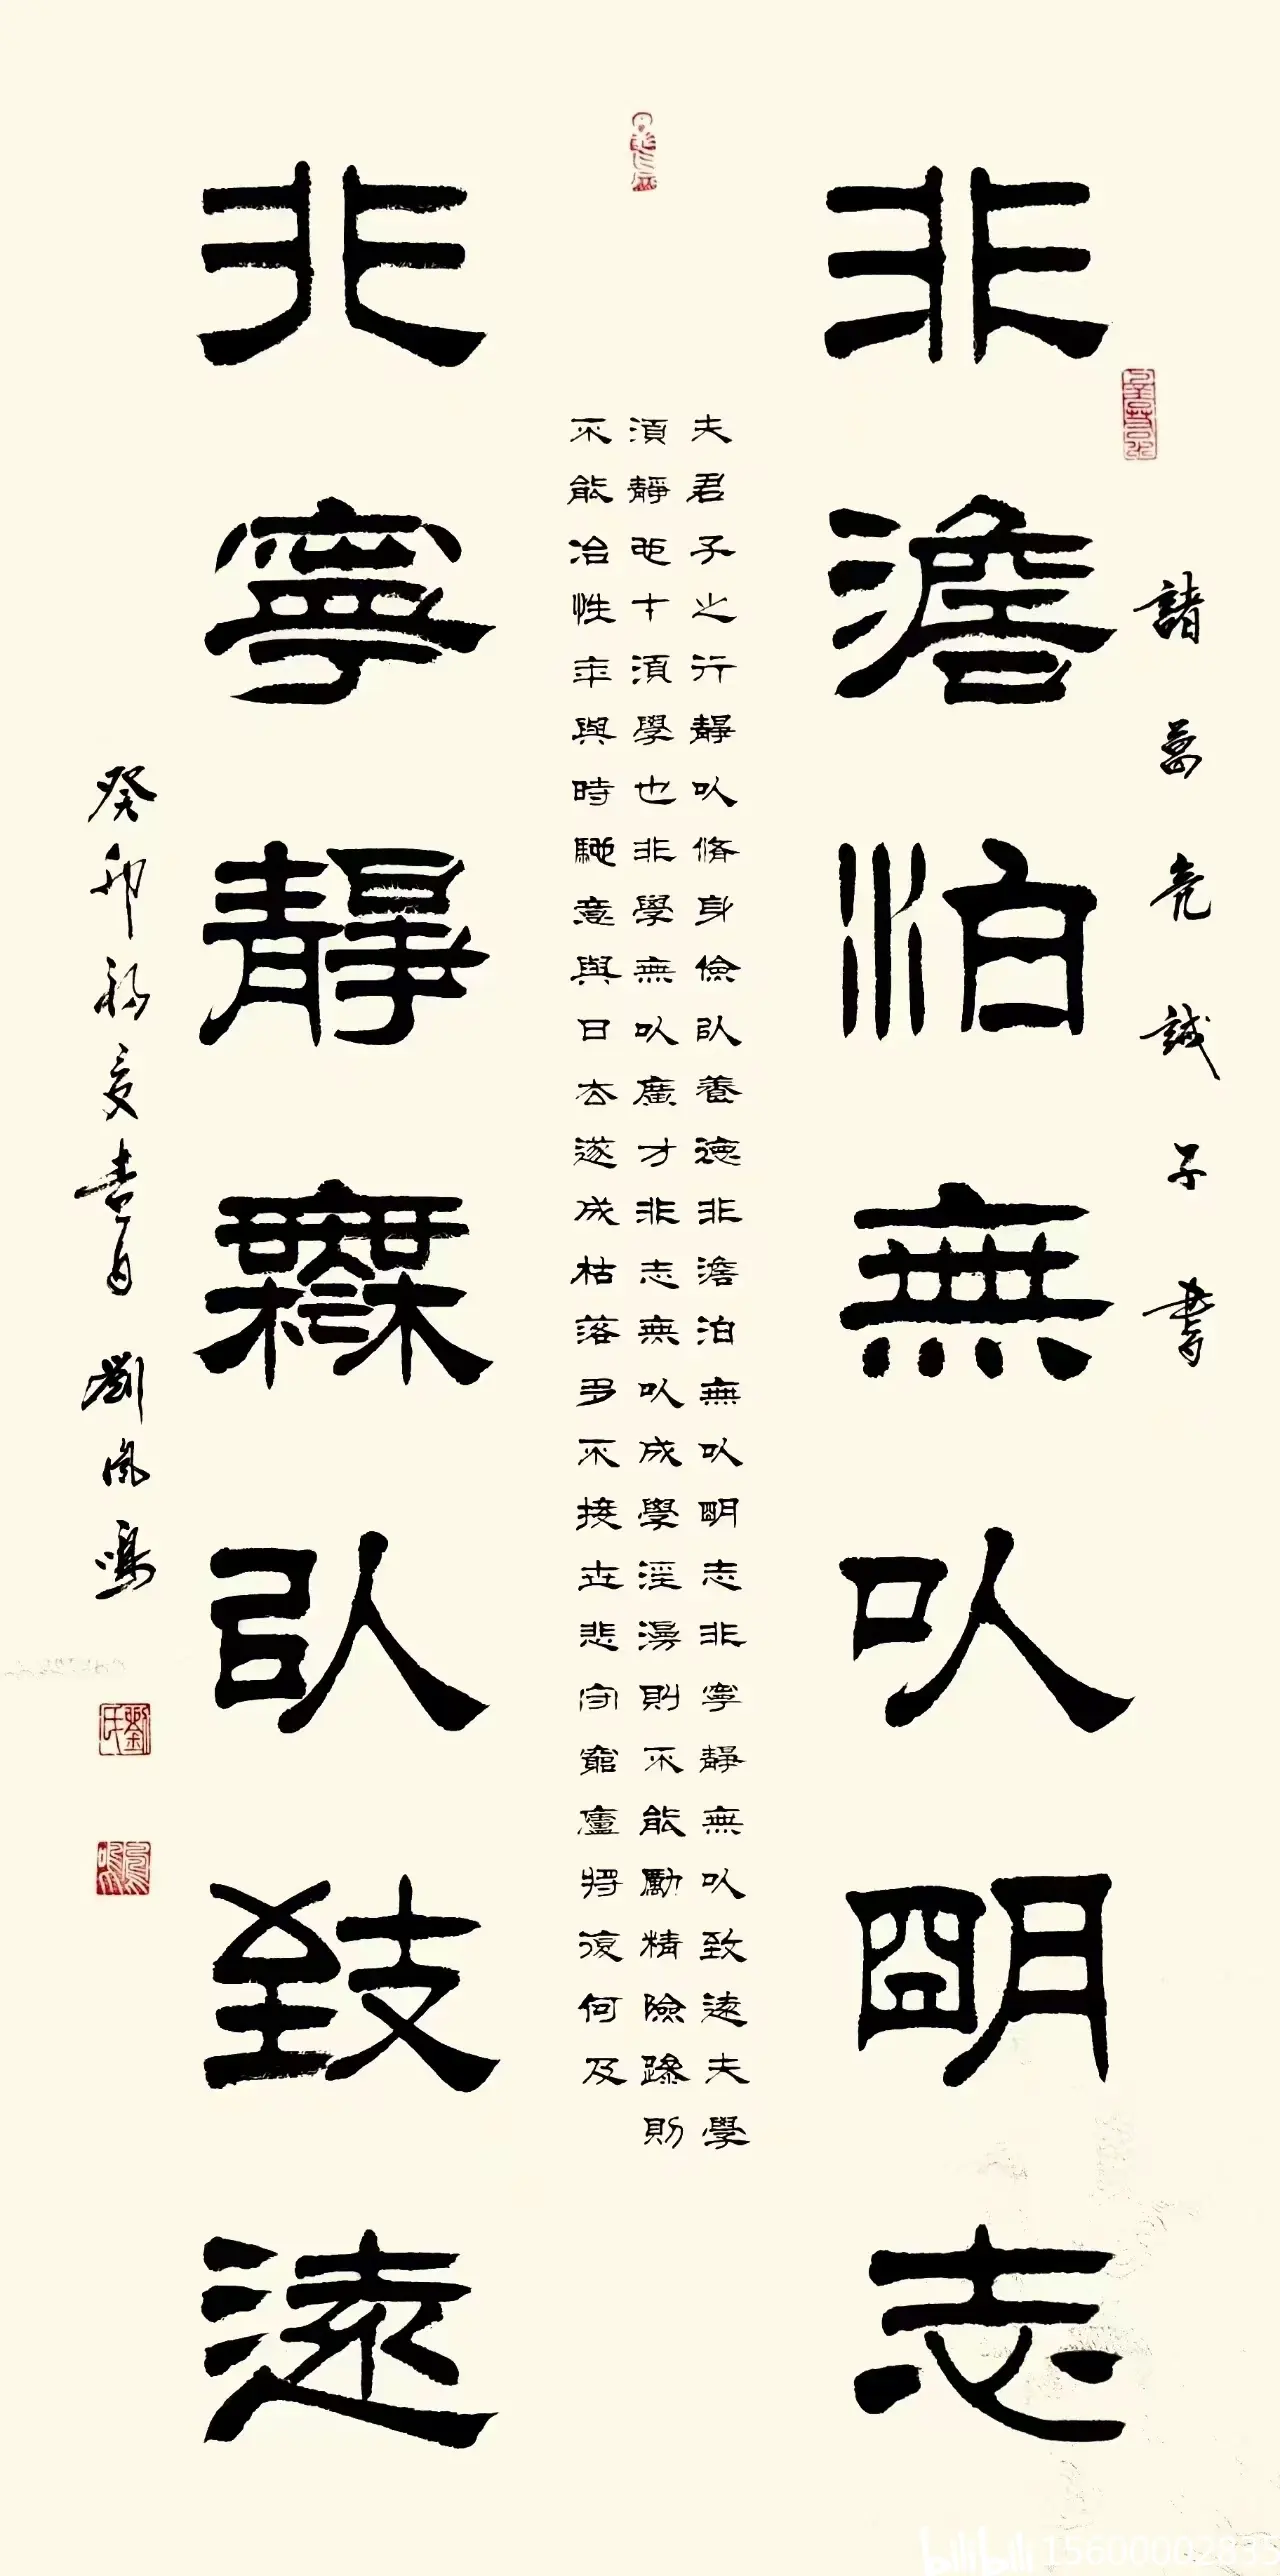 諸葛亮誡子書
非澹泊無以明志
夫君子之行靜以脩身儉以養德非澹泊無以明志非寧靜無以致遠夫學
須靜也才須學也非學無以廣才非志無以成學淫漫則不能勵精險躁則
不能冶性年與時馳意與日去遂成枯落多不接世悲守窮廬將復何及
非寧靜無以致遠
癸卯 書 劉鳳鳴
劉氏
鳳鳴
bilibili 15600002835